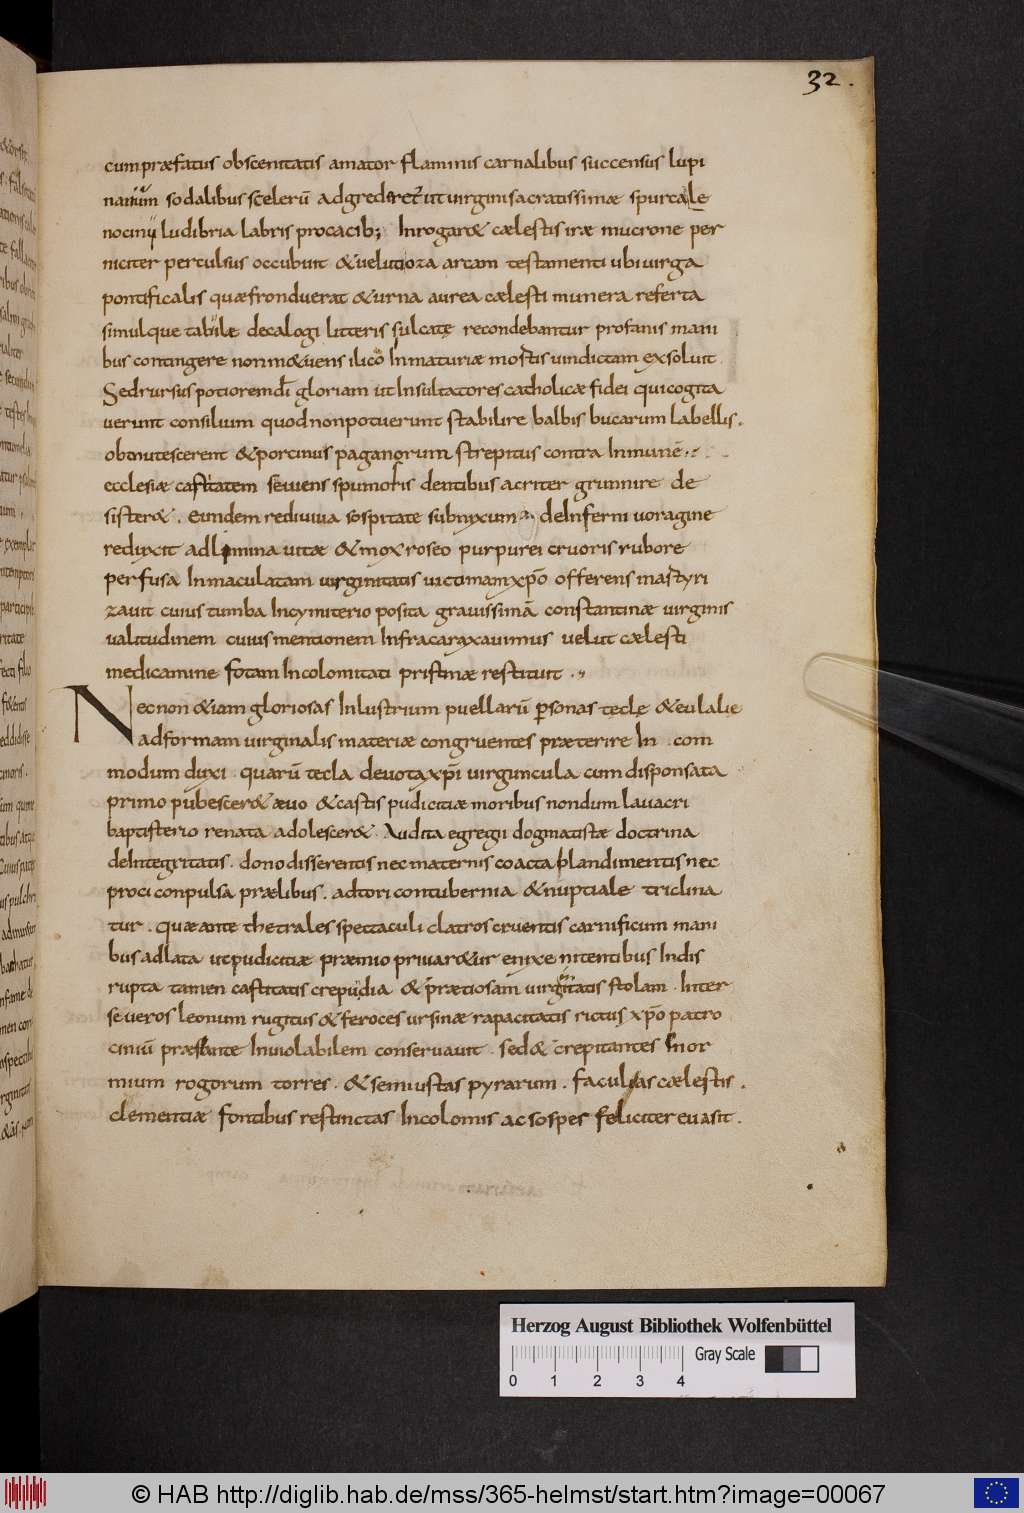 32.
cum præfatus obscenitatis amator flammis carnalibus succensus lupi
narium sodalibus scelerū adgrederet̄ ut virgini sacratissimæ spurca le
nocinii ludibria labris procacib; Inrogar& cælestis iræ mucrone per
niciter perculsus occubuit & velut oza arcam testamenti ubi virga
pontificalis quæ fronduerat & urna aurea cælesti munera referta
simulque tabulæ decalogi litteris sulcatę recondebantur profanis mani
bus contingere non m&uens ilico Inmaturiæ mortis vindictam exsoluit
Sed rursus potiorem dī gloriam ut Insultatores catholicæ fidei qui cogita
verunt consilium quod non potuerunt stabilire balbis bucarum labellis.
obmutescerent & porcinus paganorum strepitus contra Inmunē
ecclesiæ castitatem seuiens spumosis dentibus acriter grunnire de
sister&. eundem rediviva sospitate subnixum de Inferni voragine
reduxit ad limina vitæ & mox roseo purpurei cruoris rubore
perfusa Inmaculatam virginitatis victimam xp̄o offerens martyri
zauit cuius tumba In cymiterio posita gravissimā constantinæ virginis
valitudinem cuius mentionem Infra caraxavimus velut cælesti
medicamine fotam Incolomitati pristinæ restituit
Necnon & iam gloriosas Inlustrium puellarū personas teclę & eulalię
ad formam virginalis materiæ congruentes præterire In com
modum duxi. quarū tecla devota xp̄i virguncula cum disponsata
primo pubescer& ævo & castis pudicitiæ moribus nondum lavacri
baptisterio renata adolescer&. Audita egregii dogmatistæ doctrina
de Integritatis. dono disserentis nec maternis coacta blandimentis nec
proci conpulsa prælibus. ad tori contubernia & nuptiale triclina
tur. quæ ante thetrales spectaculi clatros cruentis carnificum mani
bus adlata ut pudicitiæ præmio privar&ur enixe nitentibus Indis
rupta tamen castitatis crepudia & prætiosam virginitatis stolam. Inter
severos leonum rugitus & feroces ursinæ rapacitatis rictus xp̄o patro
ciniū præstante Inviolabilem conservavit. sed & crepitantes Inor
mium rogorum torres. & semiustas pyrarum. faculas cælestis.
clementiæ fontibus restinctas Incolomis ac sospes feliciter evasit.
Herzog August Bibliothek Wolfenbüttel
Gray Scale
0 1 2 3 4
© HAB http://diglib.hab.de/mss/365-helmst/start.htm?image=00067